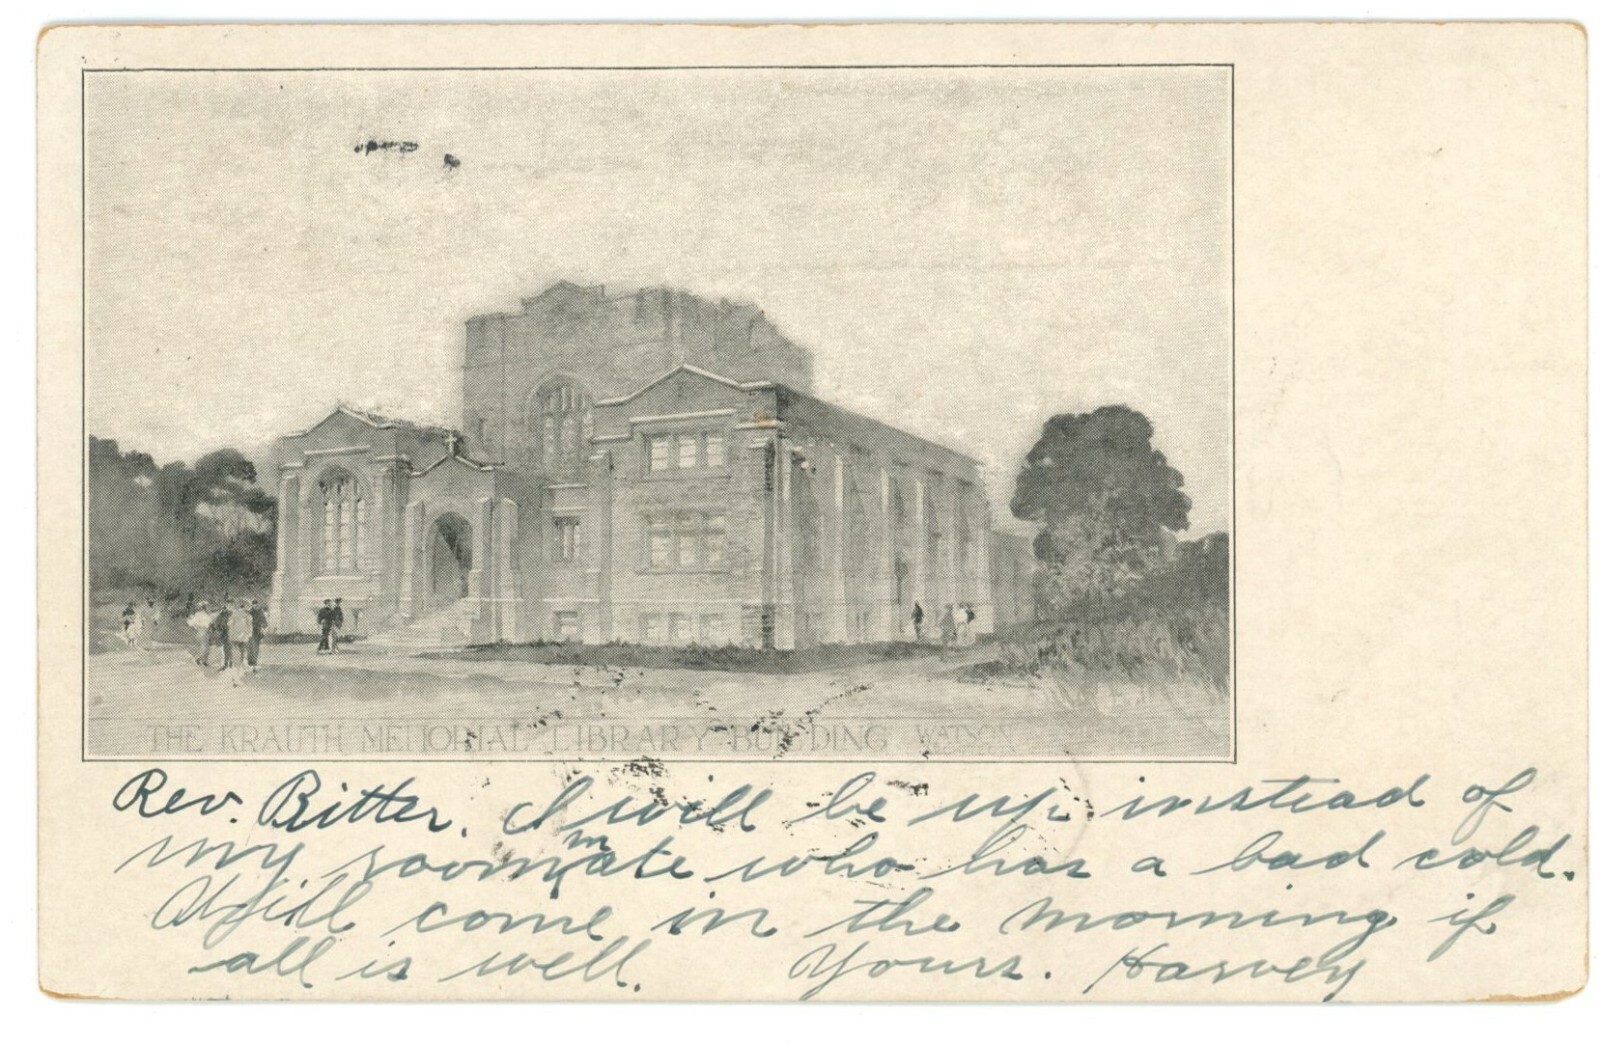 THE KRAUTH MEMORIAL LIBRARY BUILDING WATSON
Rev. Ritter. I will be up instead of
my roommate who has a bad cold.
Will come in the morning if
all is well. Yours. Harvey